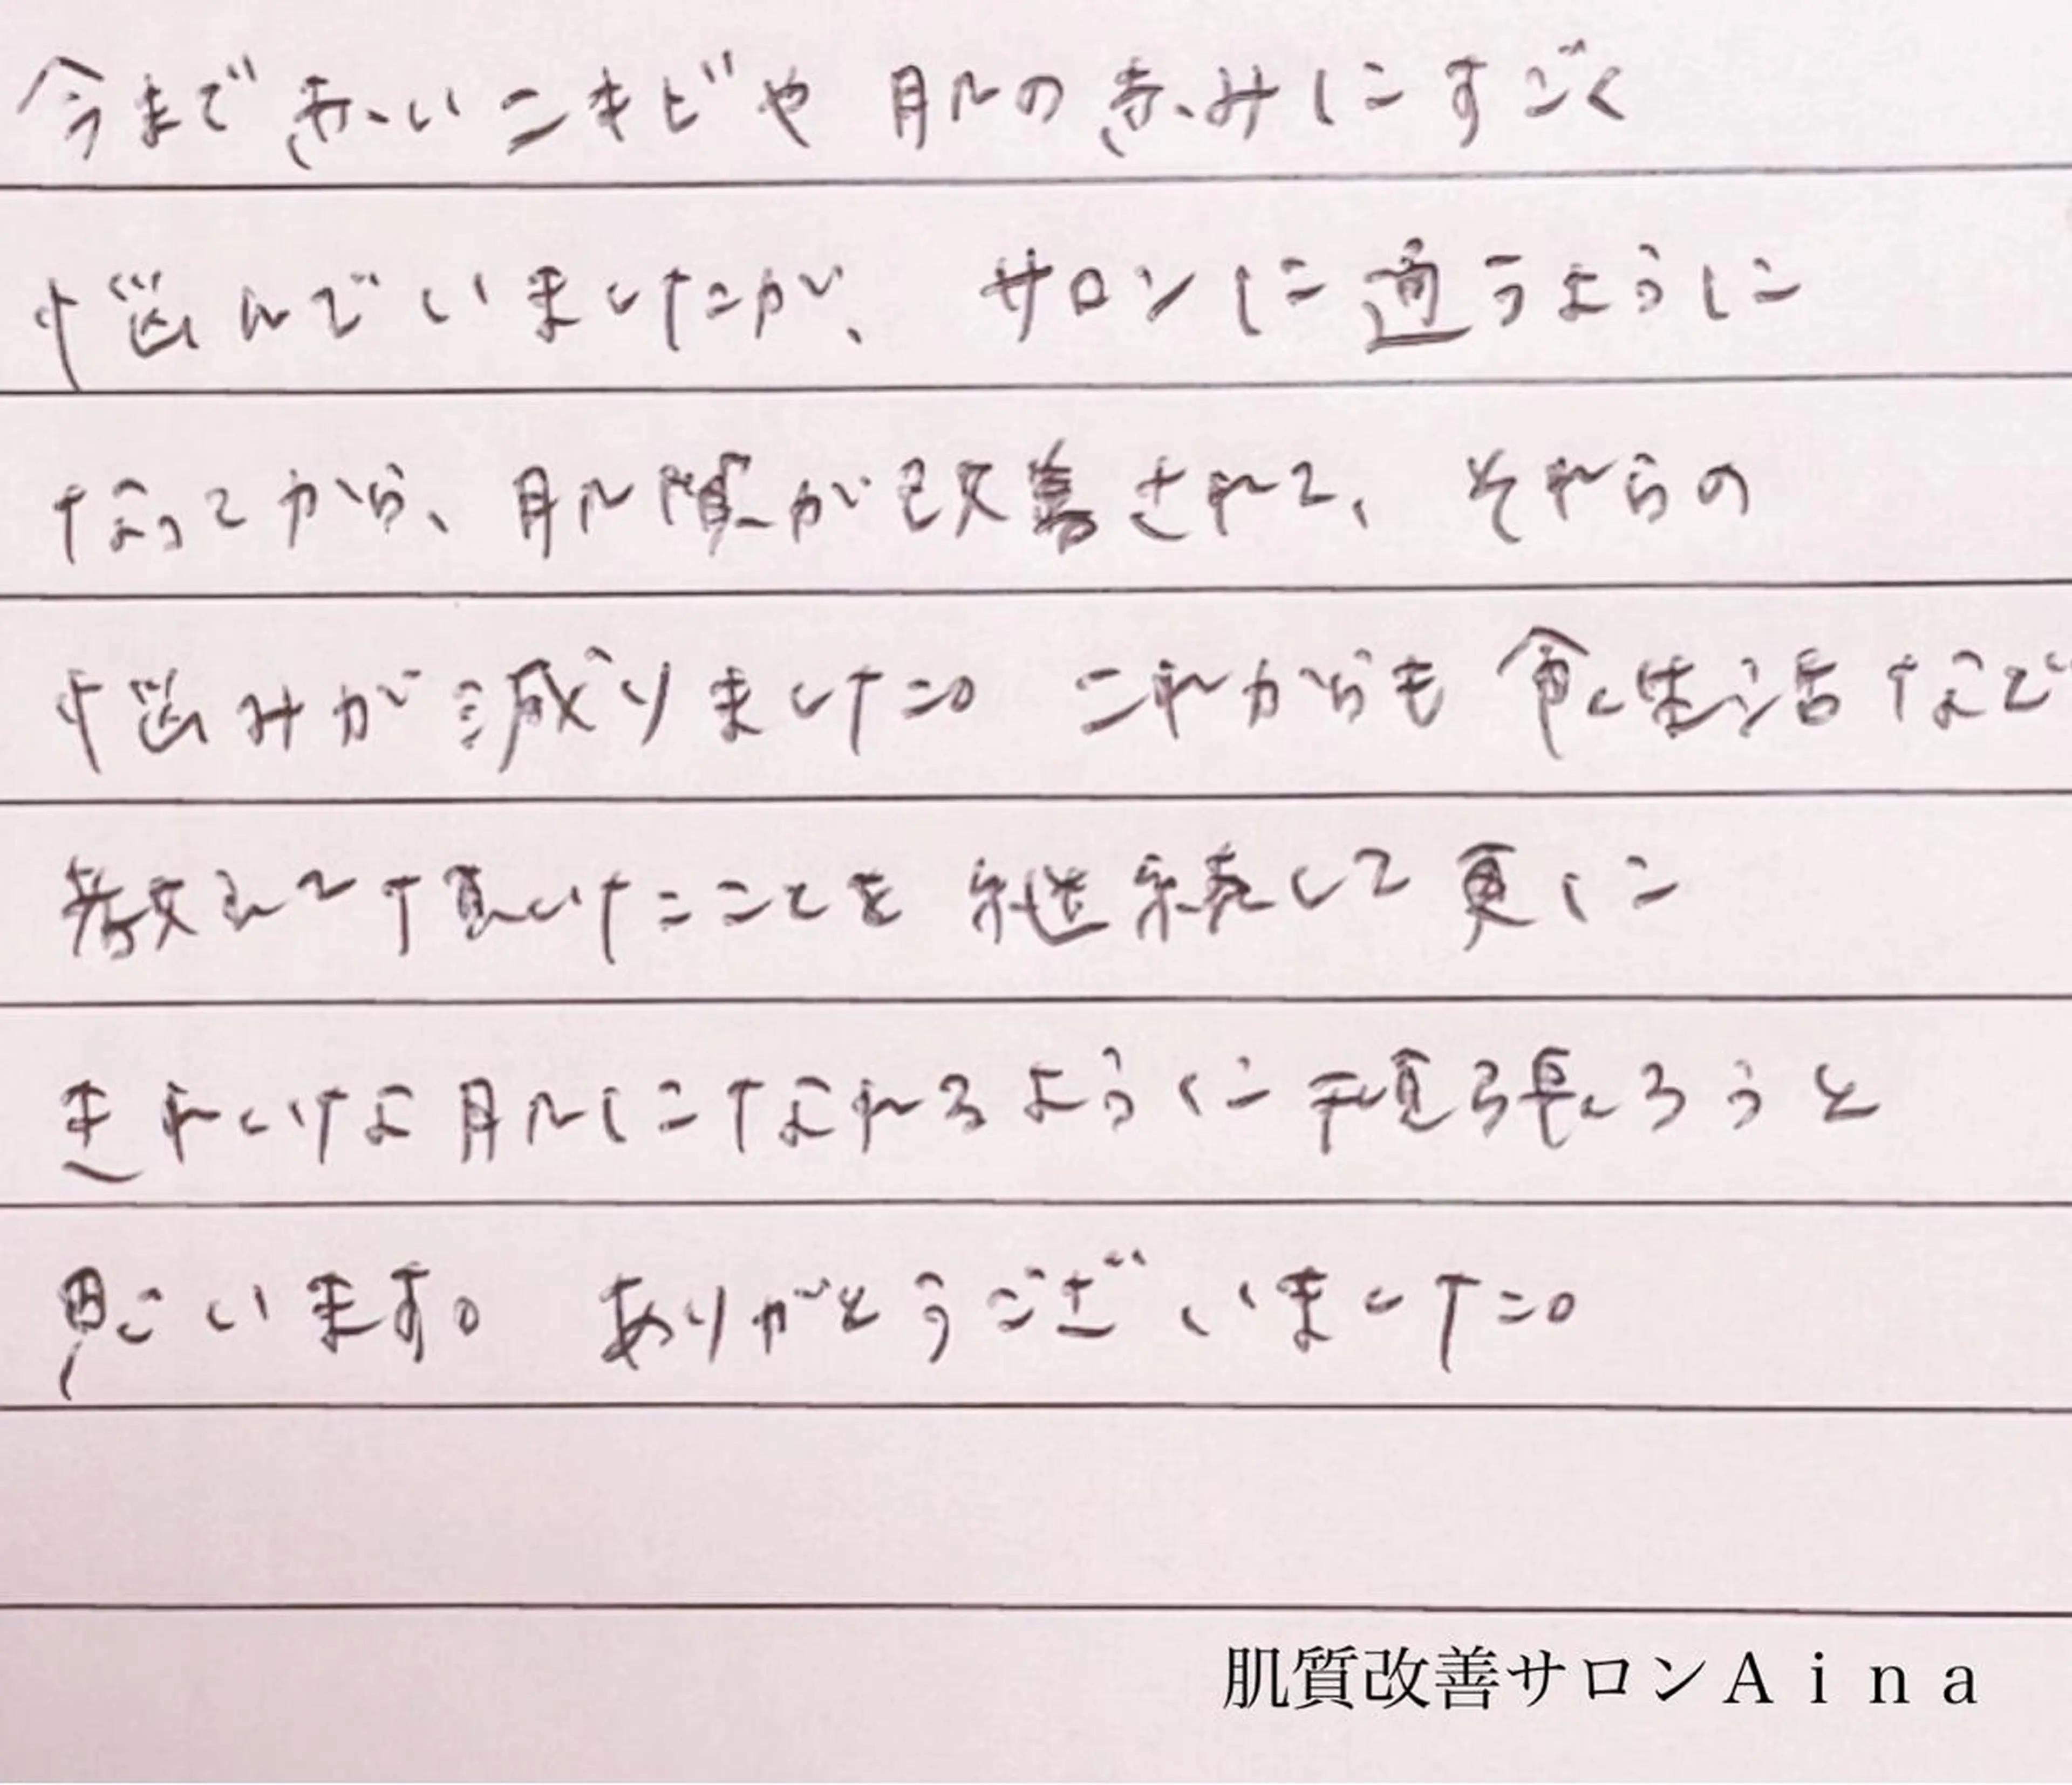 今まで赤いニキビや肌の赤みにすごく
悩んでいましたが、サロンに通うように
なってから、肌質が改善されて、それらの
悩みが減りました。これからも食生活など
教えて頂いたことを継続して更に
きれいな肌になれるように頑張ろうと
思います。ありがとうございました。
肌質改善サロンAina